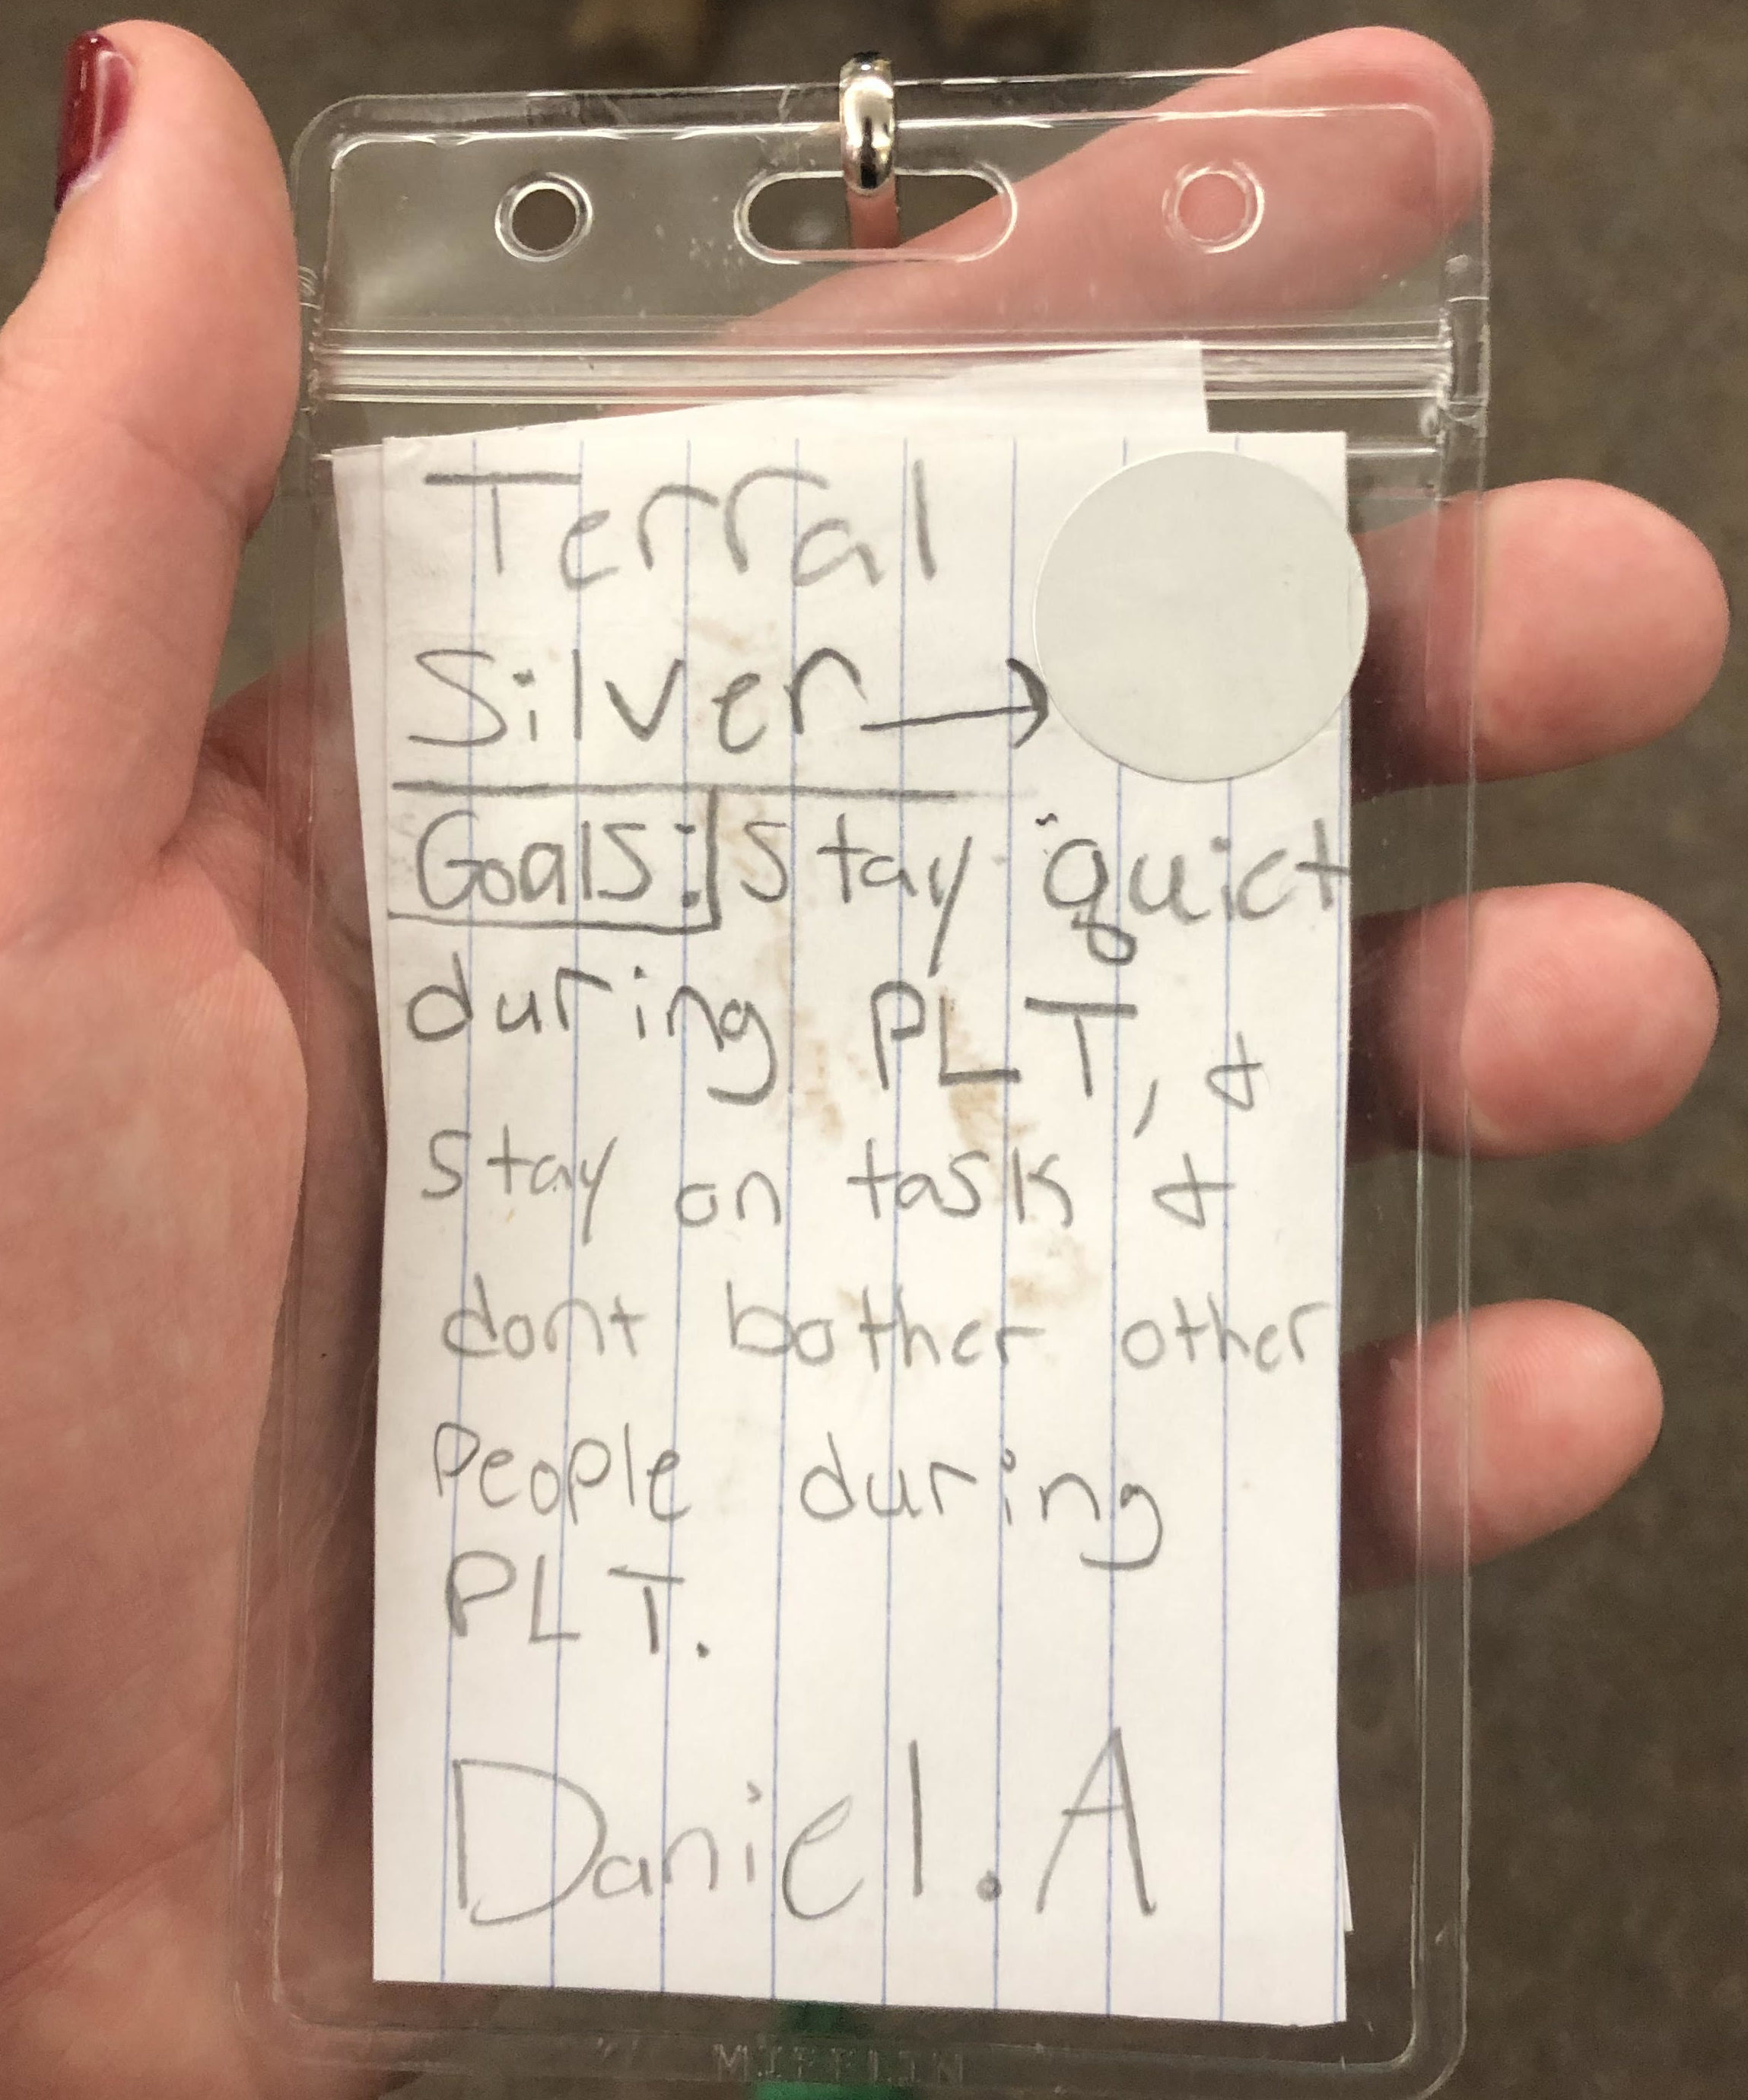 Terral
Silver →
Goals: Stay quiet
during PLT, &
Stay on task &
dont bother other
People during
PLT.
Daniel.A
MIFFLIN